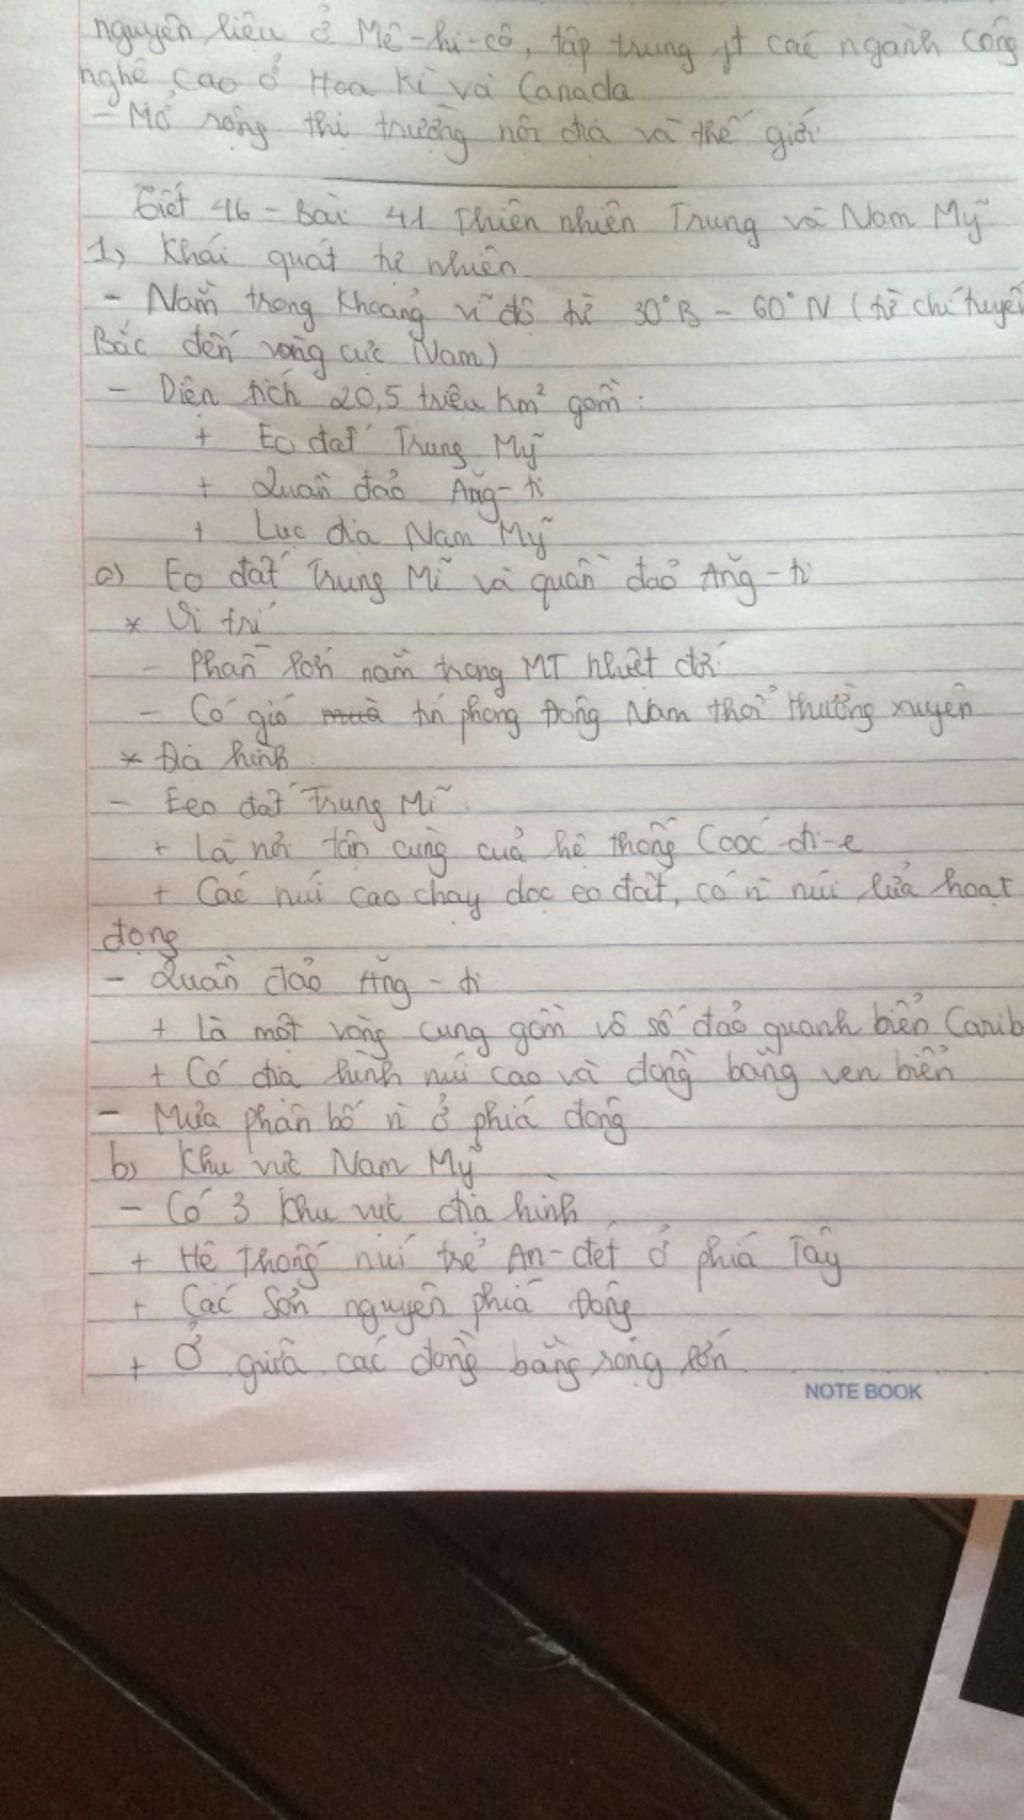 nguyên liệu ở Mê-hi-cô, tập trung pt các ngành công
nghệ cao ở Hoa Kì và Canada
- Mở rộng thị trường nội địa và thế giới
Tiết 46 - Bài 41 Thiên nhiên Trung và Nam Mỹ
1, Khái quát tự nhiên
- Nằm trong khoảng vĩ độ từ 30°B - 60°N (từ chí tuyến
Bắc đến vòng cực Nam)
- Diện tích 20,5 triệu km² gồm:
+ Eo đất Trung Mỹ
+ Quần đảo Ăng-ti
+ Lục địa Nam Mỹ
a) Eo đất Trung Mĩ và quần đảo Ăng-ti
* Vị trí
- Phần lớn nằm trong MT nhiệt đới
- Có gió mùa tín phong Đông Nam thổi thường xuyên
* Địa hình:
- Eeo đất Trung Mĩ:
+ Là nơi tận cùng của hệ thống Cooc-đi-e
+ Các núi cao chạy dọc eo đất, có n` núi lửa hoạt
động
- Quần đảo Ăng-ti
+ Là một vòng cung gồm vô số đảo quanh biển Carib
+ Có địa hình núi cao và đồng bằng ven biển
- Mưa phân bố n` ở phía đông
b) Khu vực Nam Mỹ
- Có 3 khu vực địa hình
+ Hệ thống núi trẻ An-đét ở phía Tây
+ Các Sơn nguyên phía Đông
+ Ở giữa các đồng bằng rộng lớn
NOTE BOOK